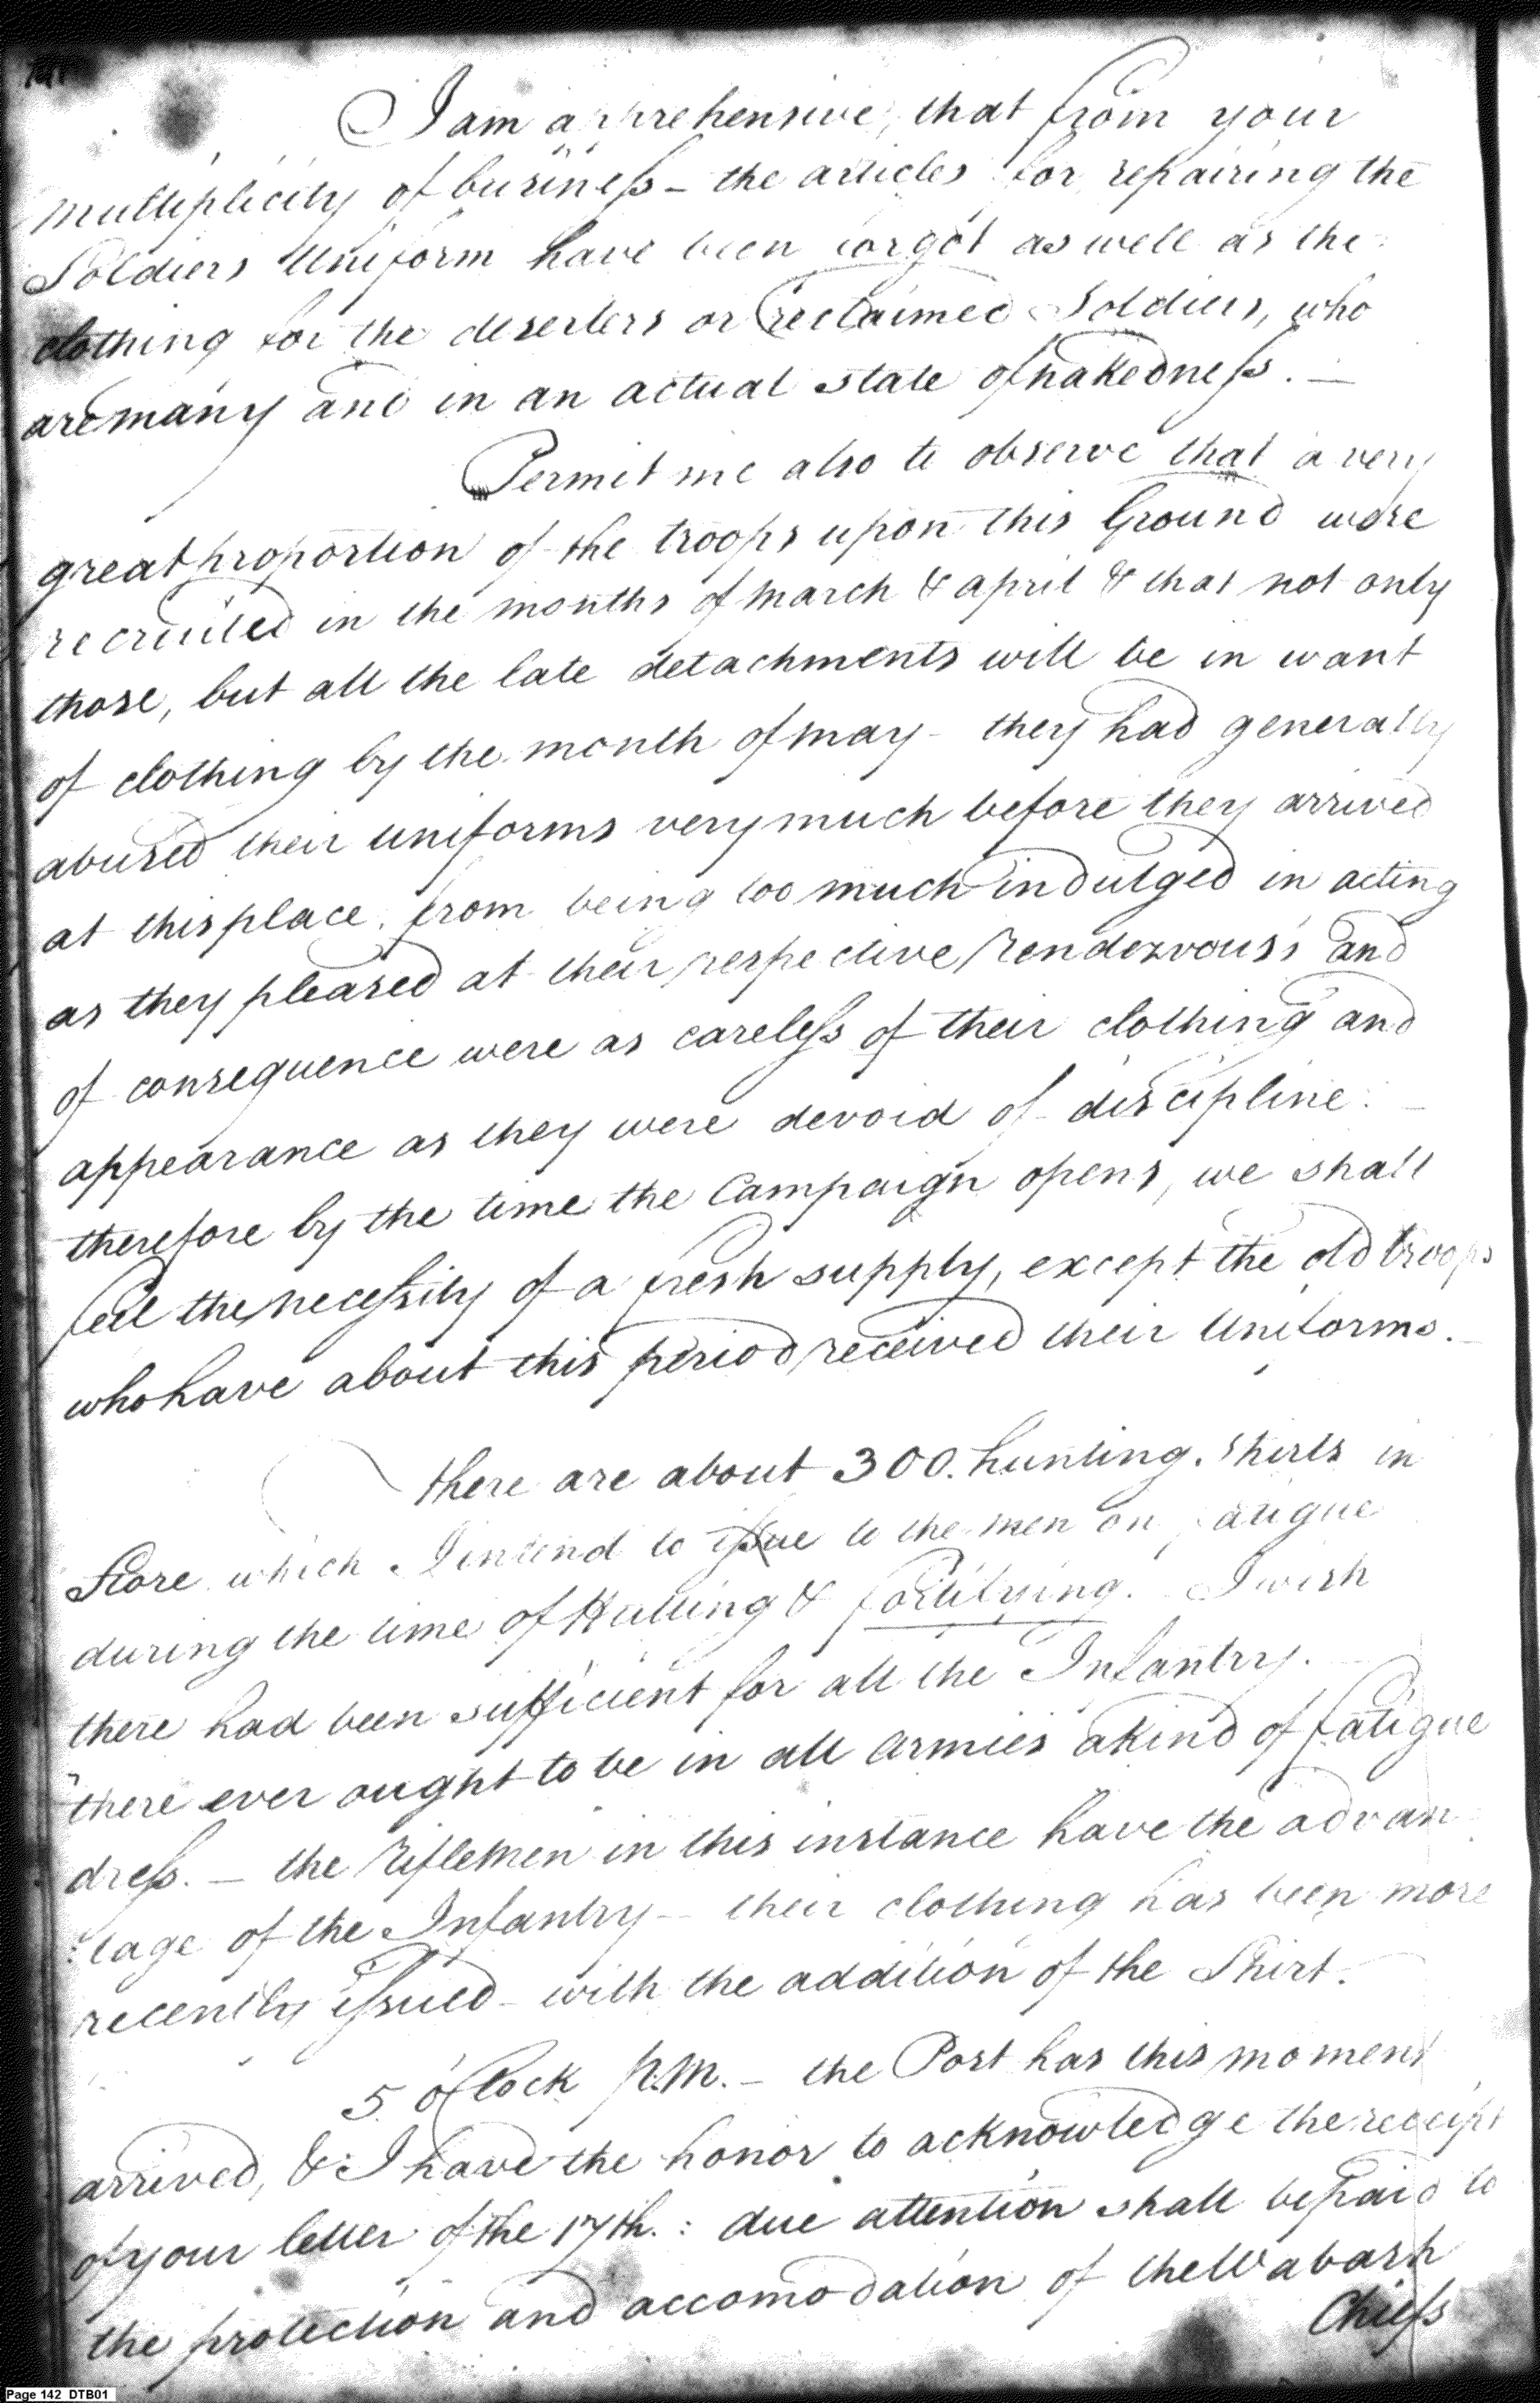 I am apprehensive, that from your
multiplicity of business – the articles for repairing the
Soldiers Uniform have been forgot as well as the
clothing for the deserters or reclaimed Soldiers, who
are many and in an actual state of nakedness. –
Permit me also to observe that a very
great proportion of the troops upon this Ground were
recruited in the months of March & april & that not only
those, but all the late detachments will be in want
of clothing by the month of may – they had generally
abused their uniforms very much before they arrived
at this place, from being too much indulged in acting
as they pleased at their respective rendezvous's and
of consequence were as careless of their clothing and
appearance as they were devoid of discipline. –
therefore by the time the Campaign opens, we shall
feel the necessity of a fresh supply, except the old troops
who have about this period received their Uniforms. –
there are about 300. hunting Shirts in
Store which I intend to issue to the men on fatigue
during the time of Hutting & fortifying. I wish
there had been sufficient for all the Infantry. –
there ever ought to be in all armies a kind of fatigue
dress. – the Riflemen in this instance have the advan
:tage of the Infantry – their clothing has been more
recently issued – with the addition of the Shirt. –
5 oClock P.M. – the Post has this moment
arrived, & I have the honor to acknowledge the receipt
of your letter of the 17th.: due attention shall be paid to
the protection and accomodation of the Wabash
Chiefs
Page 142 DTB01